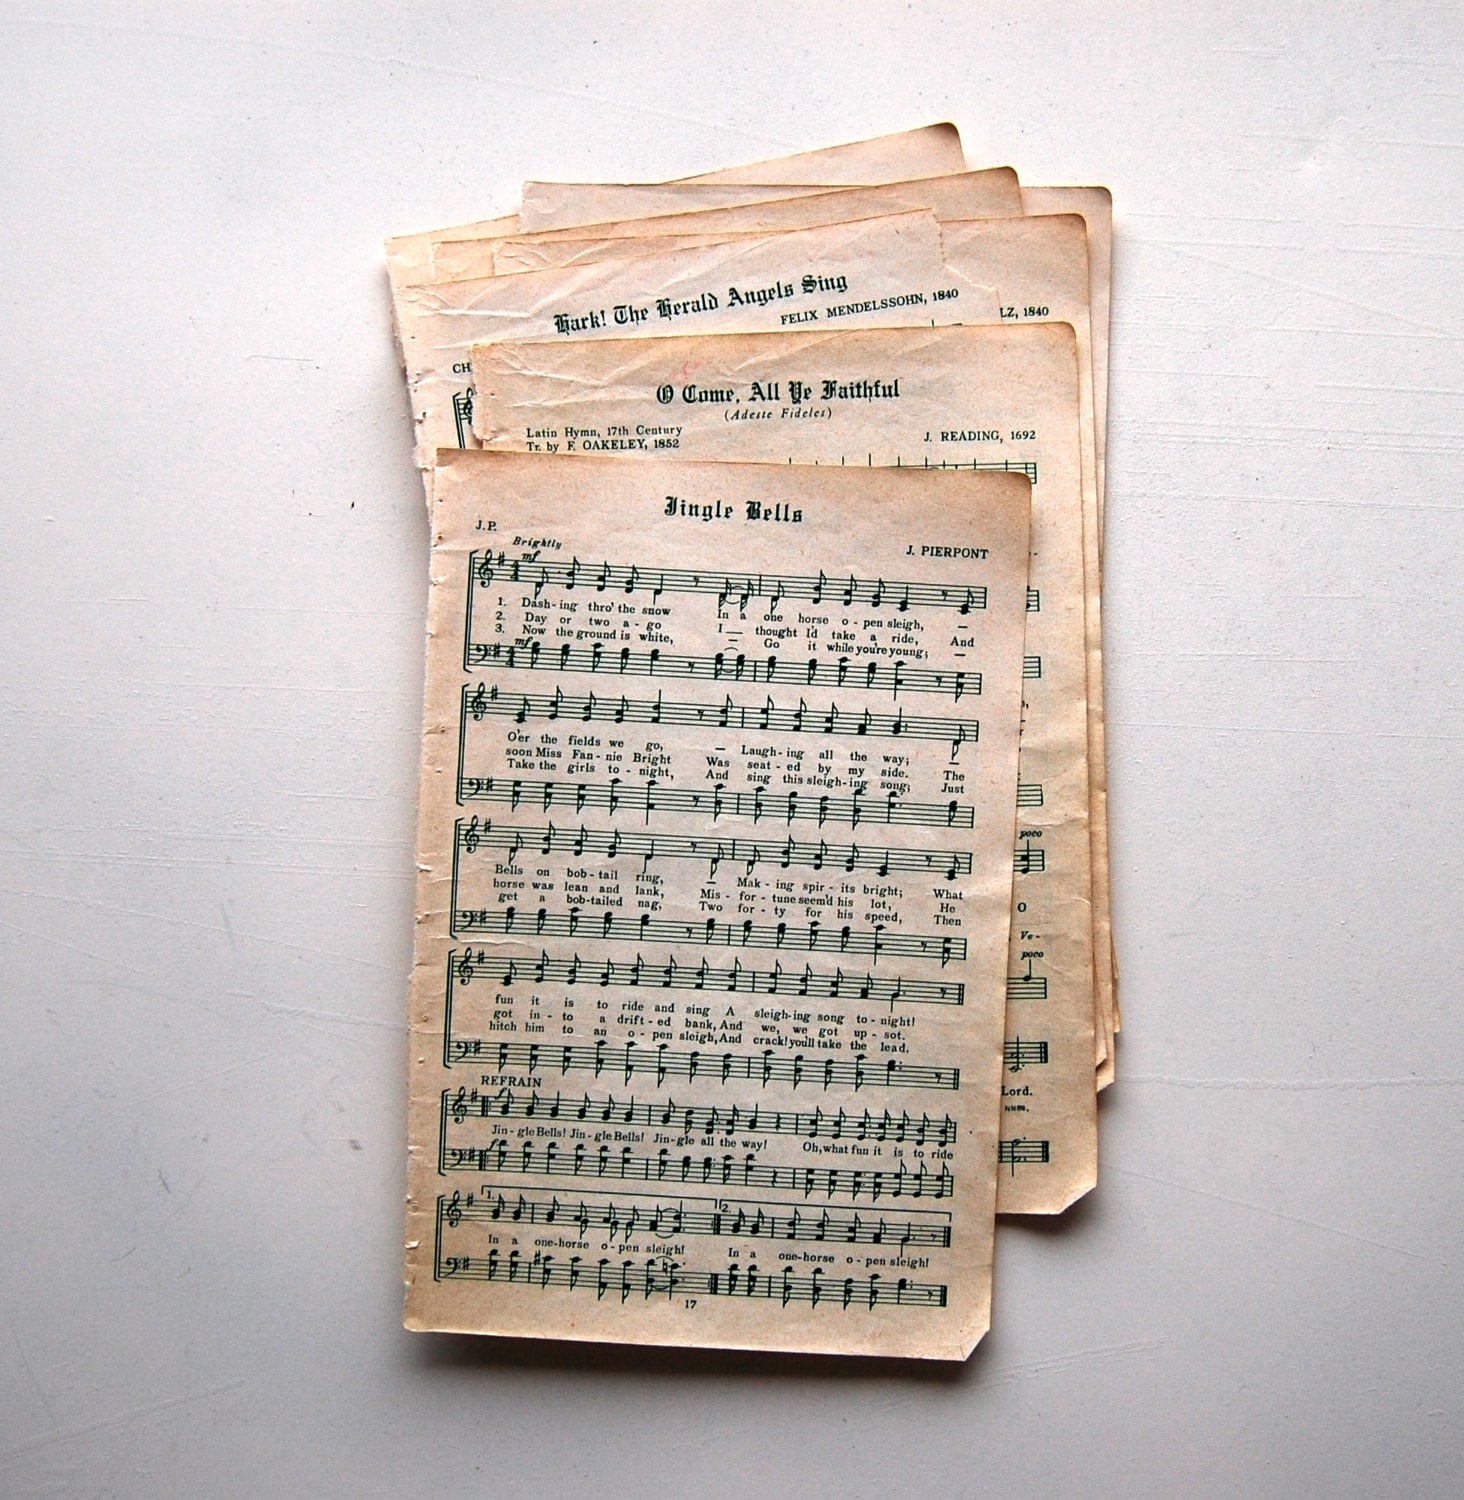 Hark! The Herald Angels Sing
FELIX MENDELSSOHN, 1840
LZ, 1840
CH
O Come, All Ye Faithful
(Adeste Fideles)
Latin Hymn, 17th Century
Tr. by F. OAKELEY, 1852
J. READING, 1692
Jingle Bells
J. P.
J. PIERPONT
Brightly
mf
1. Dash-ing thro' the snow In a one horse o-pen sleigh, —
2. Day or two a-go I — thought I'd take a ride, And
3. Now the ground is white, — Go it while you're young; —
mf
O'er the fields we go, — Laugh-ing all the way; — The
soon Miss Fan-nie Bright Was seat-ed by my side. The
Take the girls to-night, And sing this sleigh-ing song; Just
Bells on bob-tail ring, — Mak-ing spir-its bright; What
horse was lean and lank, Mis-for-tune seem'd his lot, He
get a bob-tailed nag, Two for-ty for his speed, Then
fun it is to ride and sing A sleigh-ing song to-night!
got in-to a drift-ed bank, And we, we got up-sot.
hitch him to an o-pen sleigh, And crack! you'll take the lead.
REFRAIN
f
Jin-gle Bells! Jin-gle Bells! Jin-gle all the way! Oh, what fun it is to ride
f
1.
2.
In a one-horse o-pen sleigh! In a one-horse o-pen sleigh!
17
poco
O
Ve-
poco
Lord.
num.